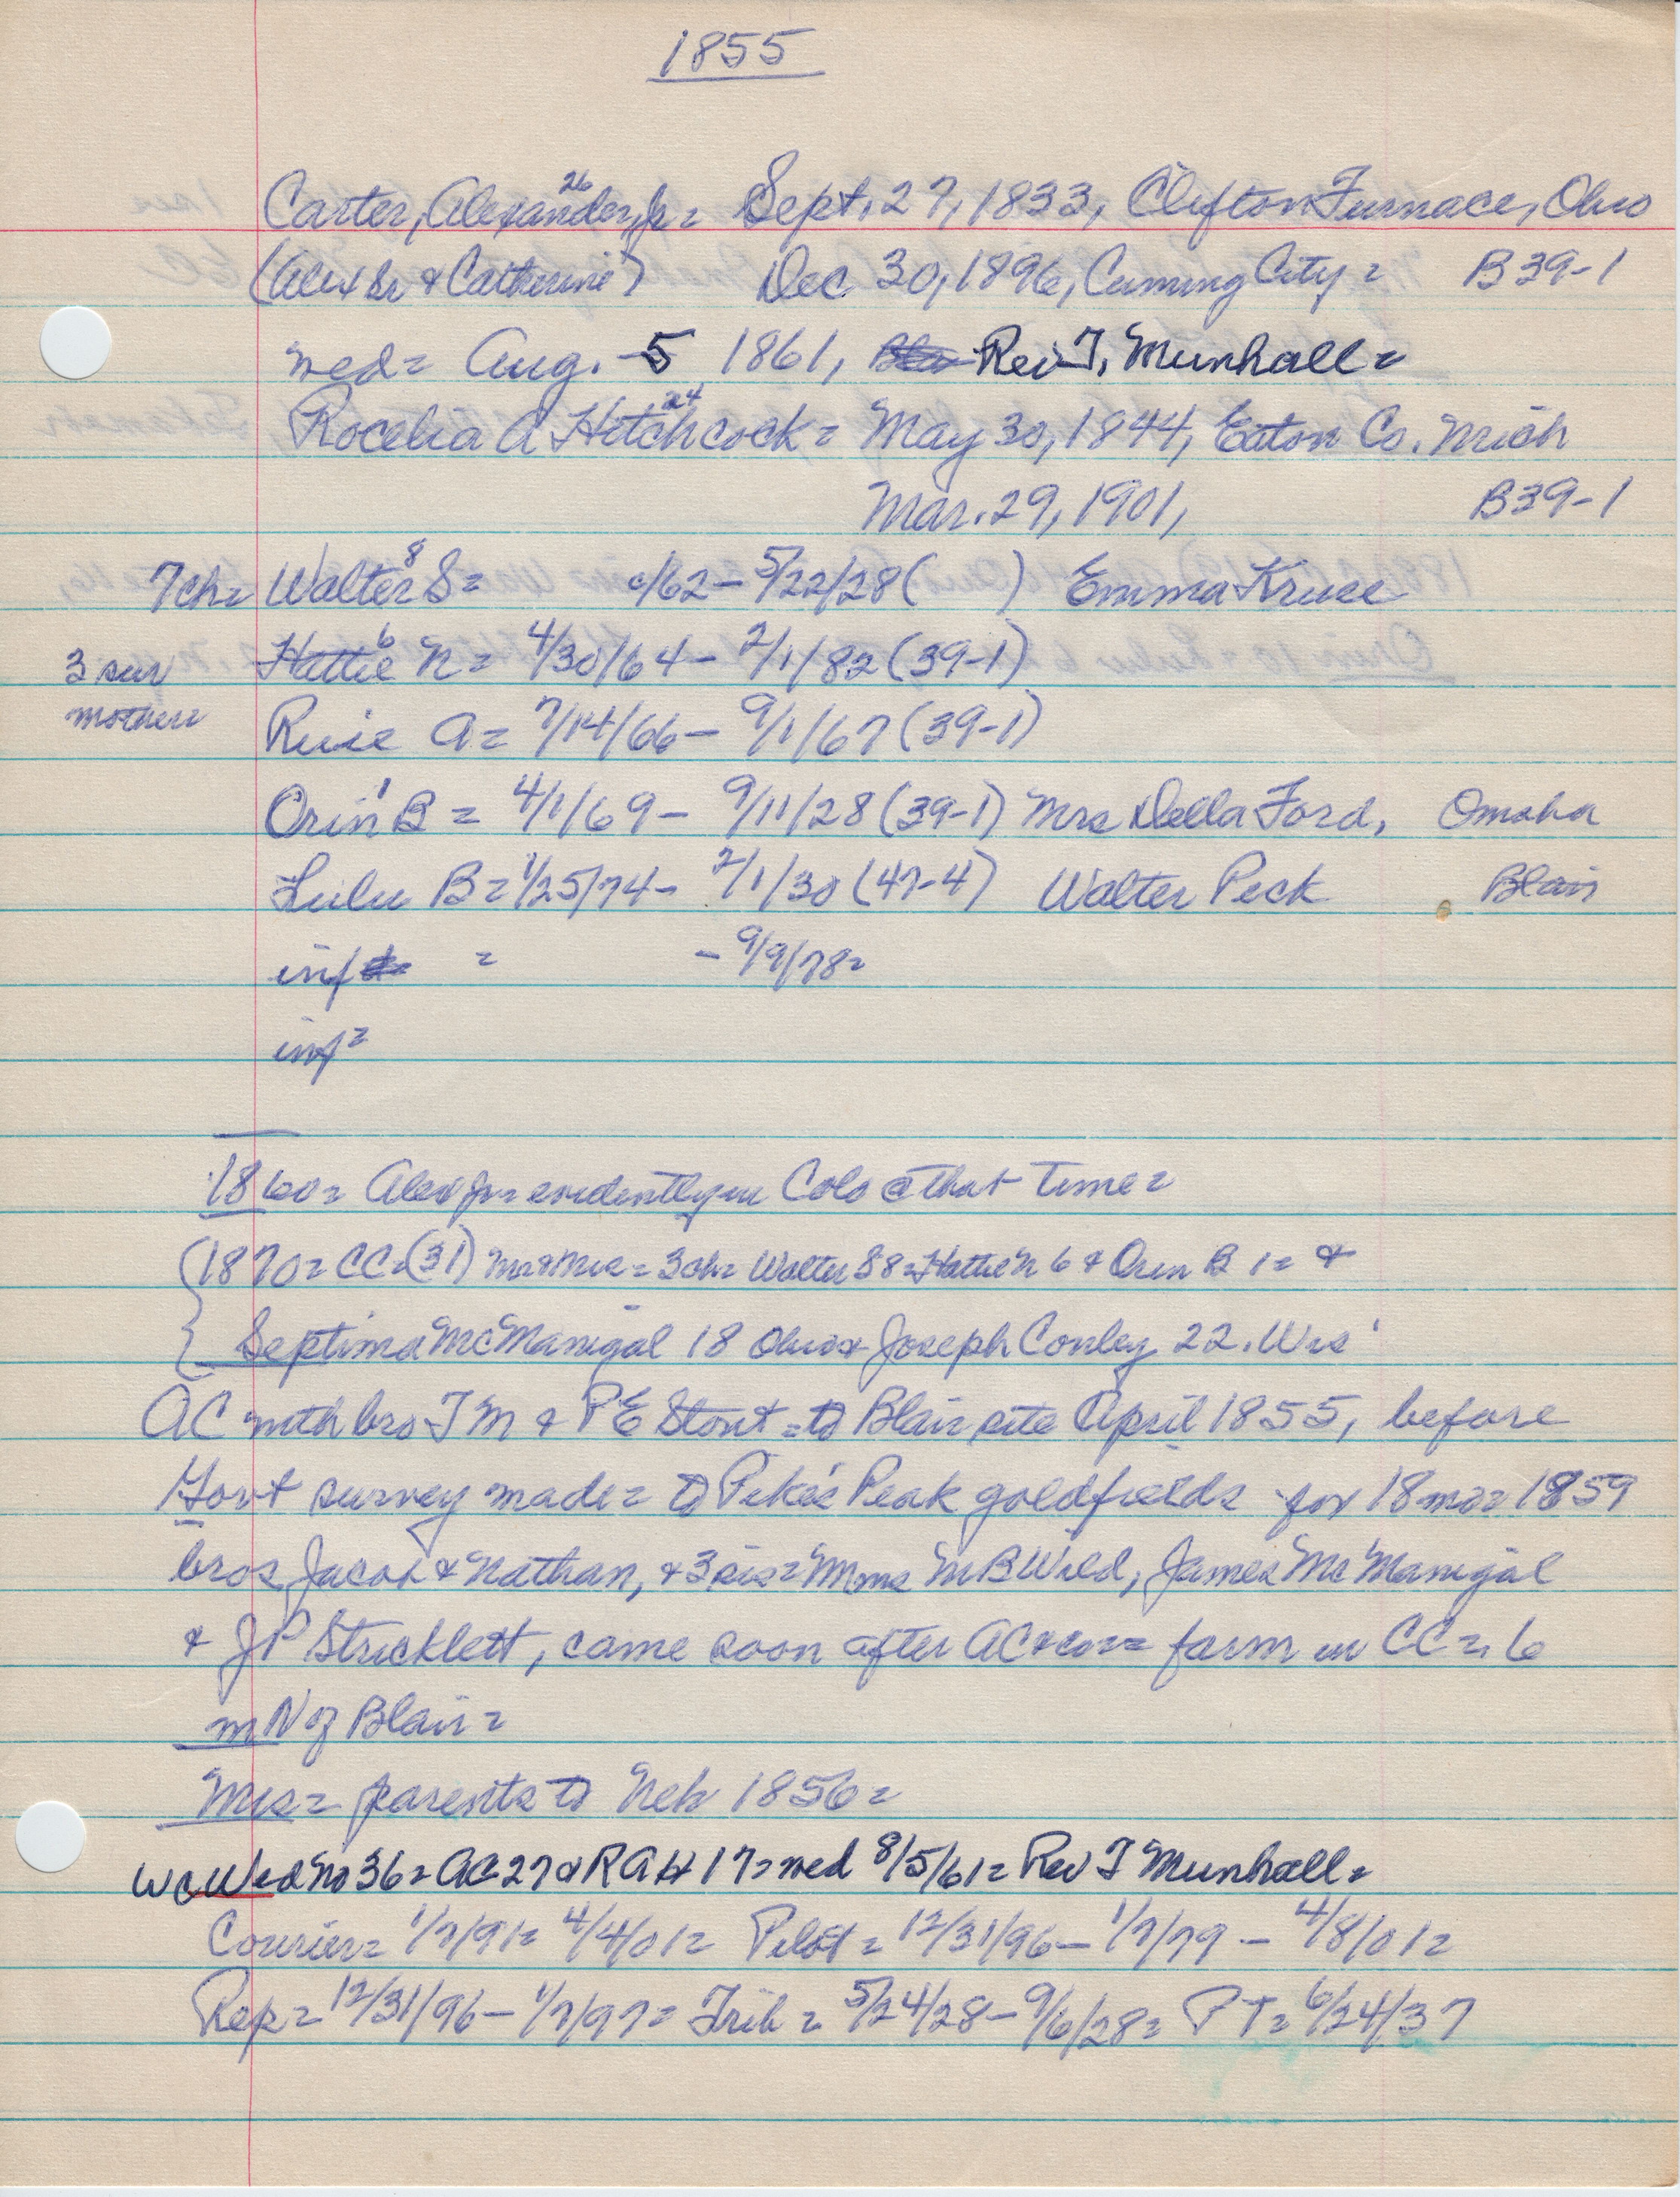 1855
Carter, Alexander, Jr = Sept. 27, 1833, Clifton Furnace, Ohio
26
(Alex Sr & Catherine) Dec 30, 1896, Cuming City = B39-1
wed = Aug. 5 1861, Rev T. Munhall =
Rocelia A Hitchcock = May 30, 1844, Eaton Co. Mich
24
Mar. 29, 1901, B39-1
7 ch = Walter S = c/62 - 5/22/28 ( ) Emma Kruse
8
3 sur Hattie N = 4/30/64 - 2/1/82 (39-1)
6
mother = Ruie A = 7/14/66 - 9/1/67 (39-1)
Orin B = 4/1/69 - 9/11/28 (39-1) Mrs Della Ford, Omaha
1
Lulu B = 1/25/74 - 2/1/30 (47-4) Walter Peck Blair
inf = - 9/9/78 =
inf =
1860 = Alex Jr = evidently in Colo @ that time =
1870 = CC = (31) Mr & Mrs = 3 ch = Walter S 8 = Hattie N 6 & Orin B 1 = &
Septima McManigal 18 Ohio & Joseph Conley 22. Wis
AC with bro T M & P E Stout = to Blair site April 1855, before
Govt survey made = to Pike's Peak goldfields for 18 mo = 1859
bros Jacob & Nathan, & 3 sis = Mmes M B Wild, James McManigal
& J P Stricklett, came soon after AC & co = farm in CC = 6
m N of Blair =
Mrs = parents to Neb 1856 =
WC Wed No 36 = AC 27 & R A H 17 = wed 8/5/61 = Rev T Munhall =
Courier = 1/7/91 = 4/4/01 = Pilot = 12/31/96 - 1/7/79 - 4/8/01 =
Rep = 12/31/96 - 1/7/97 = Trib = 5/24/28 - 9/6/28 = PT = 6/24/37